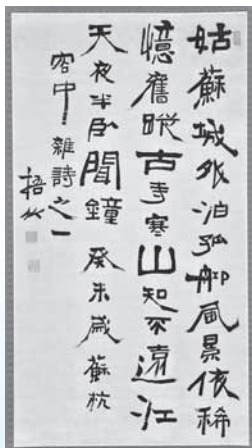 姑蘇城外泊孤舟風景依稀
憶舊蹤古寺寒山知不遠江
天夜半臥聞鐘 癸未歲蘇杭
客中雜詩之一